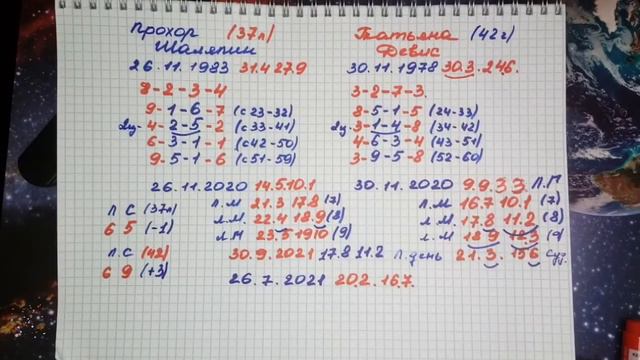 Прохор (37л)
Шаляпин
26.11.1983 31.4 27.9
8-2-3-4
9-1-6-7 (с 23-32)
2ц-4-2-5-2 (с 33-41)
6-3-1-1 (с 42-50)
9-5-1-6 (с 51-59)
Татьяна (42г)
Девис
30.11.1978 30.3.24.6.
3-2-7-3
8-5-1-5 (24-33)
2ц-3-1-4-8 (34-42)
4-6-3-4 (43-51)
3-9-5-8 (52-60)
26.11.2020 14.5.10.1
Л.М 21.3 17.8 (7)
Л.М. 22.4 18.9 (8)
Л М 23.5 19 10 (9)
Л С (37л)
6 5 (-1)
Л.С (42)
6 9 (+3)
30.11.2020 9.9.3 3 Л.Г
Л.М 16.7 10.1 (7)
Л.М. 17.8 11.2 (8)
Л.М 18 9 12.3 (9)
30.9.2021 17.8 11.2 Л.день 21.3. 15 6 Суд.
26.7.2021 20.2.16.7.